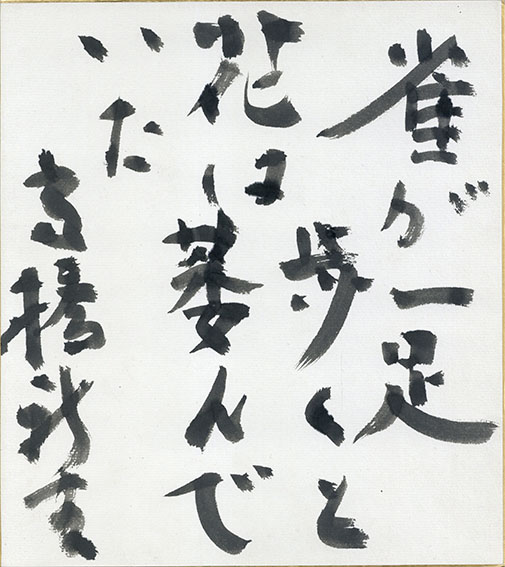 雀が一足
歩くと
花は萎んで
いた
高橋新吉